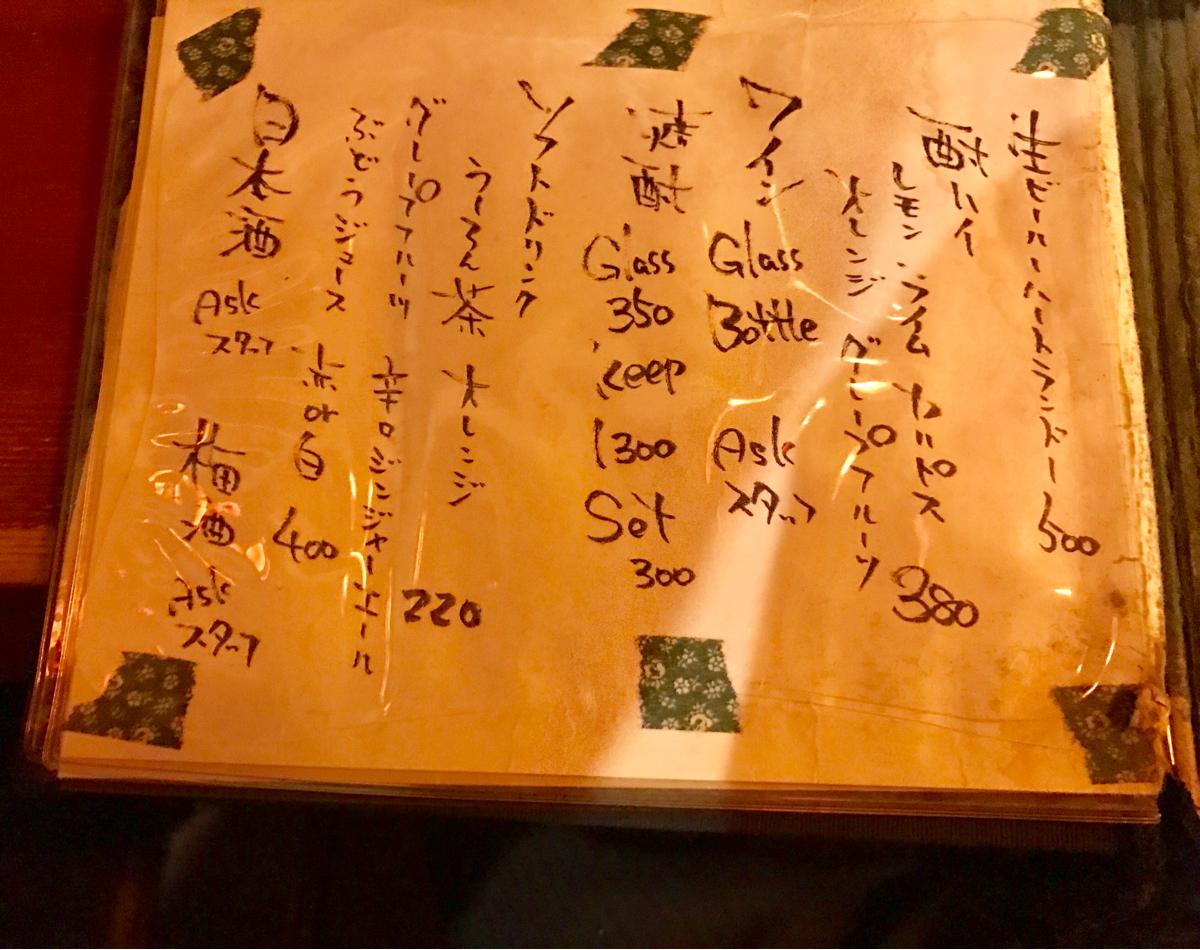 生ビール ハートランドー 500
酎ハイ
レモン ライム カルピス
オレンジ グレープフルーツ 380
ワイン Glass Bottle Ask スタッフ
焼酎 Glass 350 keep 1300 Set 300
ソフトドリンク
うーろん茶 オレンジ
グレープフルーツ 辛口ジンジャーエール 220
ぶどうジュース 赤or白 400
日本酒 Ask スタッフ 梅酒 Ask スタッフ